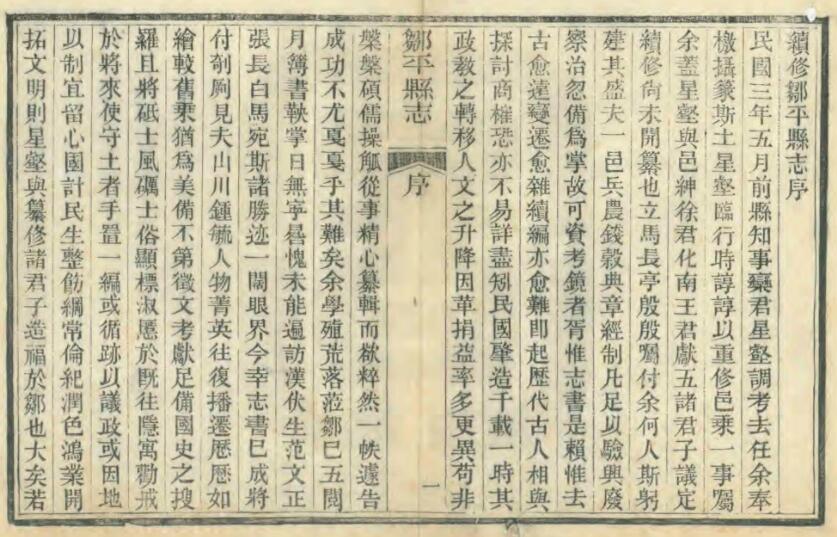 續修鄒平縣志序
民國三年五月前縣知事欒君星壑調考去任余奉
檄攝篆斯土星壑臨行時諄諄以重修邑乘一事囑
余蓋星壑與邑紳徐君化南王君獻五諸君子議定
續修尙未開纂也立馬長亭殷殷囑付余何人斯躬
建其盛夫一邑兵農錢穀典章經制凡足以驗興廢
察治忽備爲掌故可資考鏡者胥惟志書是賴惟去
古愈遠變遷愈雜續編亦愈難卽起歷代古人相與
探討商榷恐亦不易詳盡矧民國肇造千載一時其
政敎之轉移人文之升降因革捐益率多更異苟非
鄒平縣志
序
一
槃槃碩儒操觚從事精心纂輯而欲粹然一帙遽告
成功不尤戛戛乎其難矣余學殖荒落蒞鄒巳五閱
月簿書鞅掌日無寧晷愧未能遍訪漢伏生范文正
張長白馬宛斯諸勝迹一闊眼界今幸志書巳成將
付剞劂見夫山川鍾毓人物菁英往復播遷歷歷如
繪較舊乘猶爲美備不第徵文考獻足備國史之搜
羅且將砥士風礪士俗顯標淑慝於既往隱寓勸戒
於將來使守土者手置一編或循跡以議政或因地
以制宜留心國計民生整飭綱常倫紀潤色鴻業開
拓文明則星壑與纂修諸君子造福於鄒也大矣若